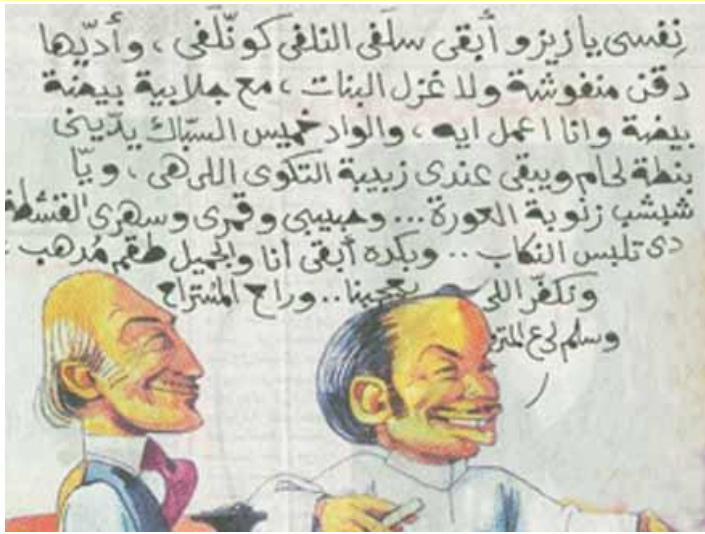 نِفسى يا زيزو أبقى سلَفى التلفى كونّلَفى ، وأدّيها
دقن منفوشة ولا غزل البنات ، مع جلابية بيضة
بيضة وانا اعمل ايه ، والواد خميس السبّاك يدّينى
بنطة لحام ويبقى عندى زبيبة التكوى اللى هى ، ويّا
شبشب زنوبة العورة ... وحبيبى وقمرى وسهرى القشطة
دى تلبس النكاب .. وبكده أبقى أنا والجميل طقم مُدهب
ونكفّر اللى يعجبنا .. وراح المستراح
وسلم لى ع المترو